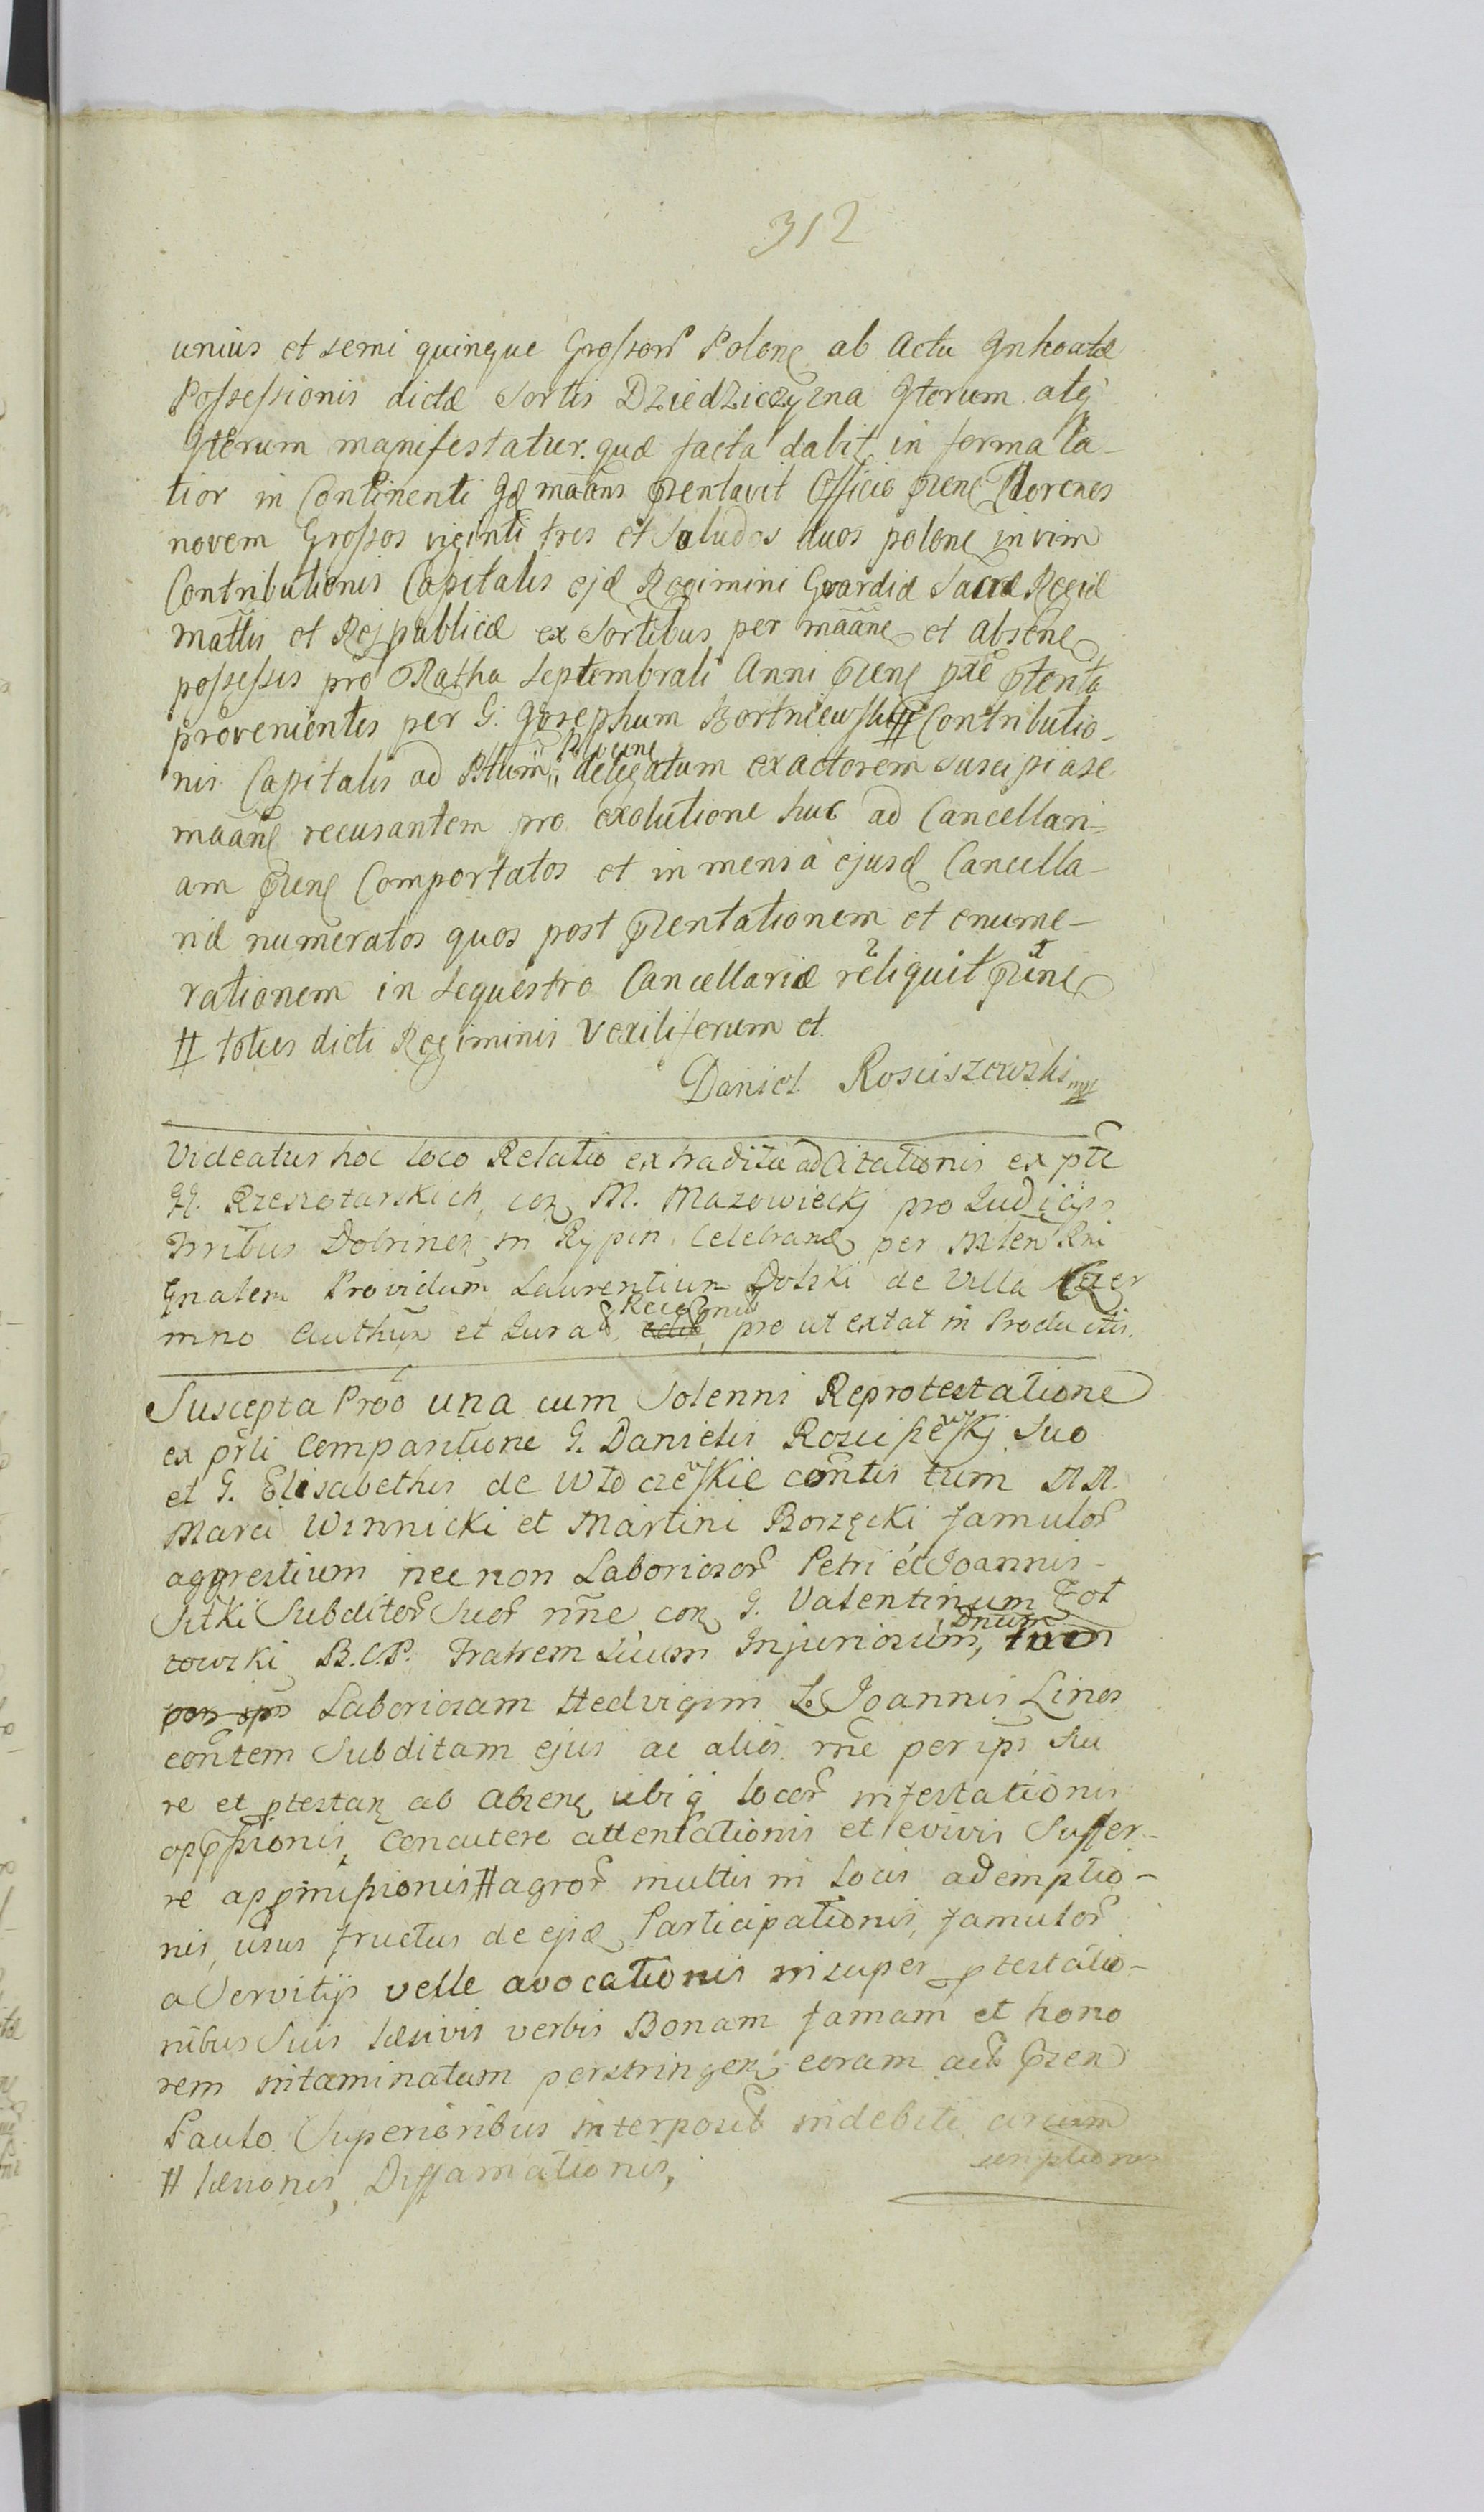 312
unius et semi quinque Grossorũ Polonę ab Actu Inhoatæ
Possessionis dictæ Sortis Dziedziczyzna Iterum atq
Iterum manifestatur. quæ facta dabit in forma la-
tior in Continenti Iđ mããns præntavit Officio prænę Florenos
novem Grossos viginti tres et Solidos duos polonę in vim
Contributionis Capitalis ejđ Regimini Gvardiæ Sacræ Regiæ
Mattis et Rejpublicæ ex Sortibus per mããnę et Absenę
possessis pro Ratha Septembrali Anni prænę
provenientes per G. Josephum Bortniewski # Contributio-
nis Capitalis ad delegatum exactorem suscipi a se
mããnę recusantem pro exolutione huc ad Cancellari-
am prænę Comportatos et in mensa ejusđ Cancella-
riæ numeratos quos post præntationem et enume-
rationem in Sequestro Cancellariæ reliquit
# totius dicti Regiminis Vexiliferum et
Daniel Rosciszewski mp
Videatur hoc loco Relatio ex tradita ad Citationis ex pte
GG. Rzeszotarskich con M. Mazowieckj pro Judicijs
Trribus Dobrinen in Rypin Celebranđ per Mten Rni
Gnalem Providum Laurentium Dolski de Villa Czer
mno Authum et Jurađ, Recognũ pro ut extat in Productis.
Suscepta Prõo una cum Solenni Reprotestatione
ex prli Comparitione G. Danielis Rosciszewskj Suo
et G. Elisabethis de Włoczewskie contis tum MM.
Marci Winnicki et Martini Borzęcki famulor
aggrestium nec non Laboriosor Petri et Joannis
Sitki Subditor Suor nne con G. Valentinum Got
towski B.C.P. Fratrem Suum Injuriosum, Dnum
Laboriosam Hedvigim Lo Joannis Linos
contem Subditam ejus ac alios rne per ips Sui
re et ptestan ab Absenę ubi q locor infestationis
opprssionis, Concutere attentationis et e vivis Suffer-
re appromissionis # agror multis in locis ademptio-
nis, usus fructus de ejsđ Participationis, famulor
a Servitijs velle avocationis insuper ptestatio-
nibus Suis læsivis verbis Bonam famam et hono
rem intaminatam perstringenę coram actis præn
Paulo Superioribus interposit indebite circum
scriptionis
# læsionis, Diffamationis,